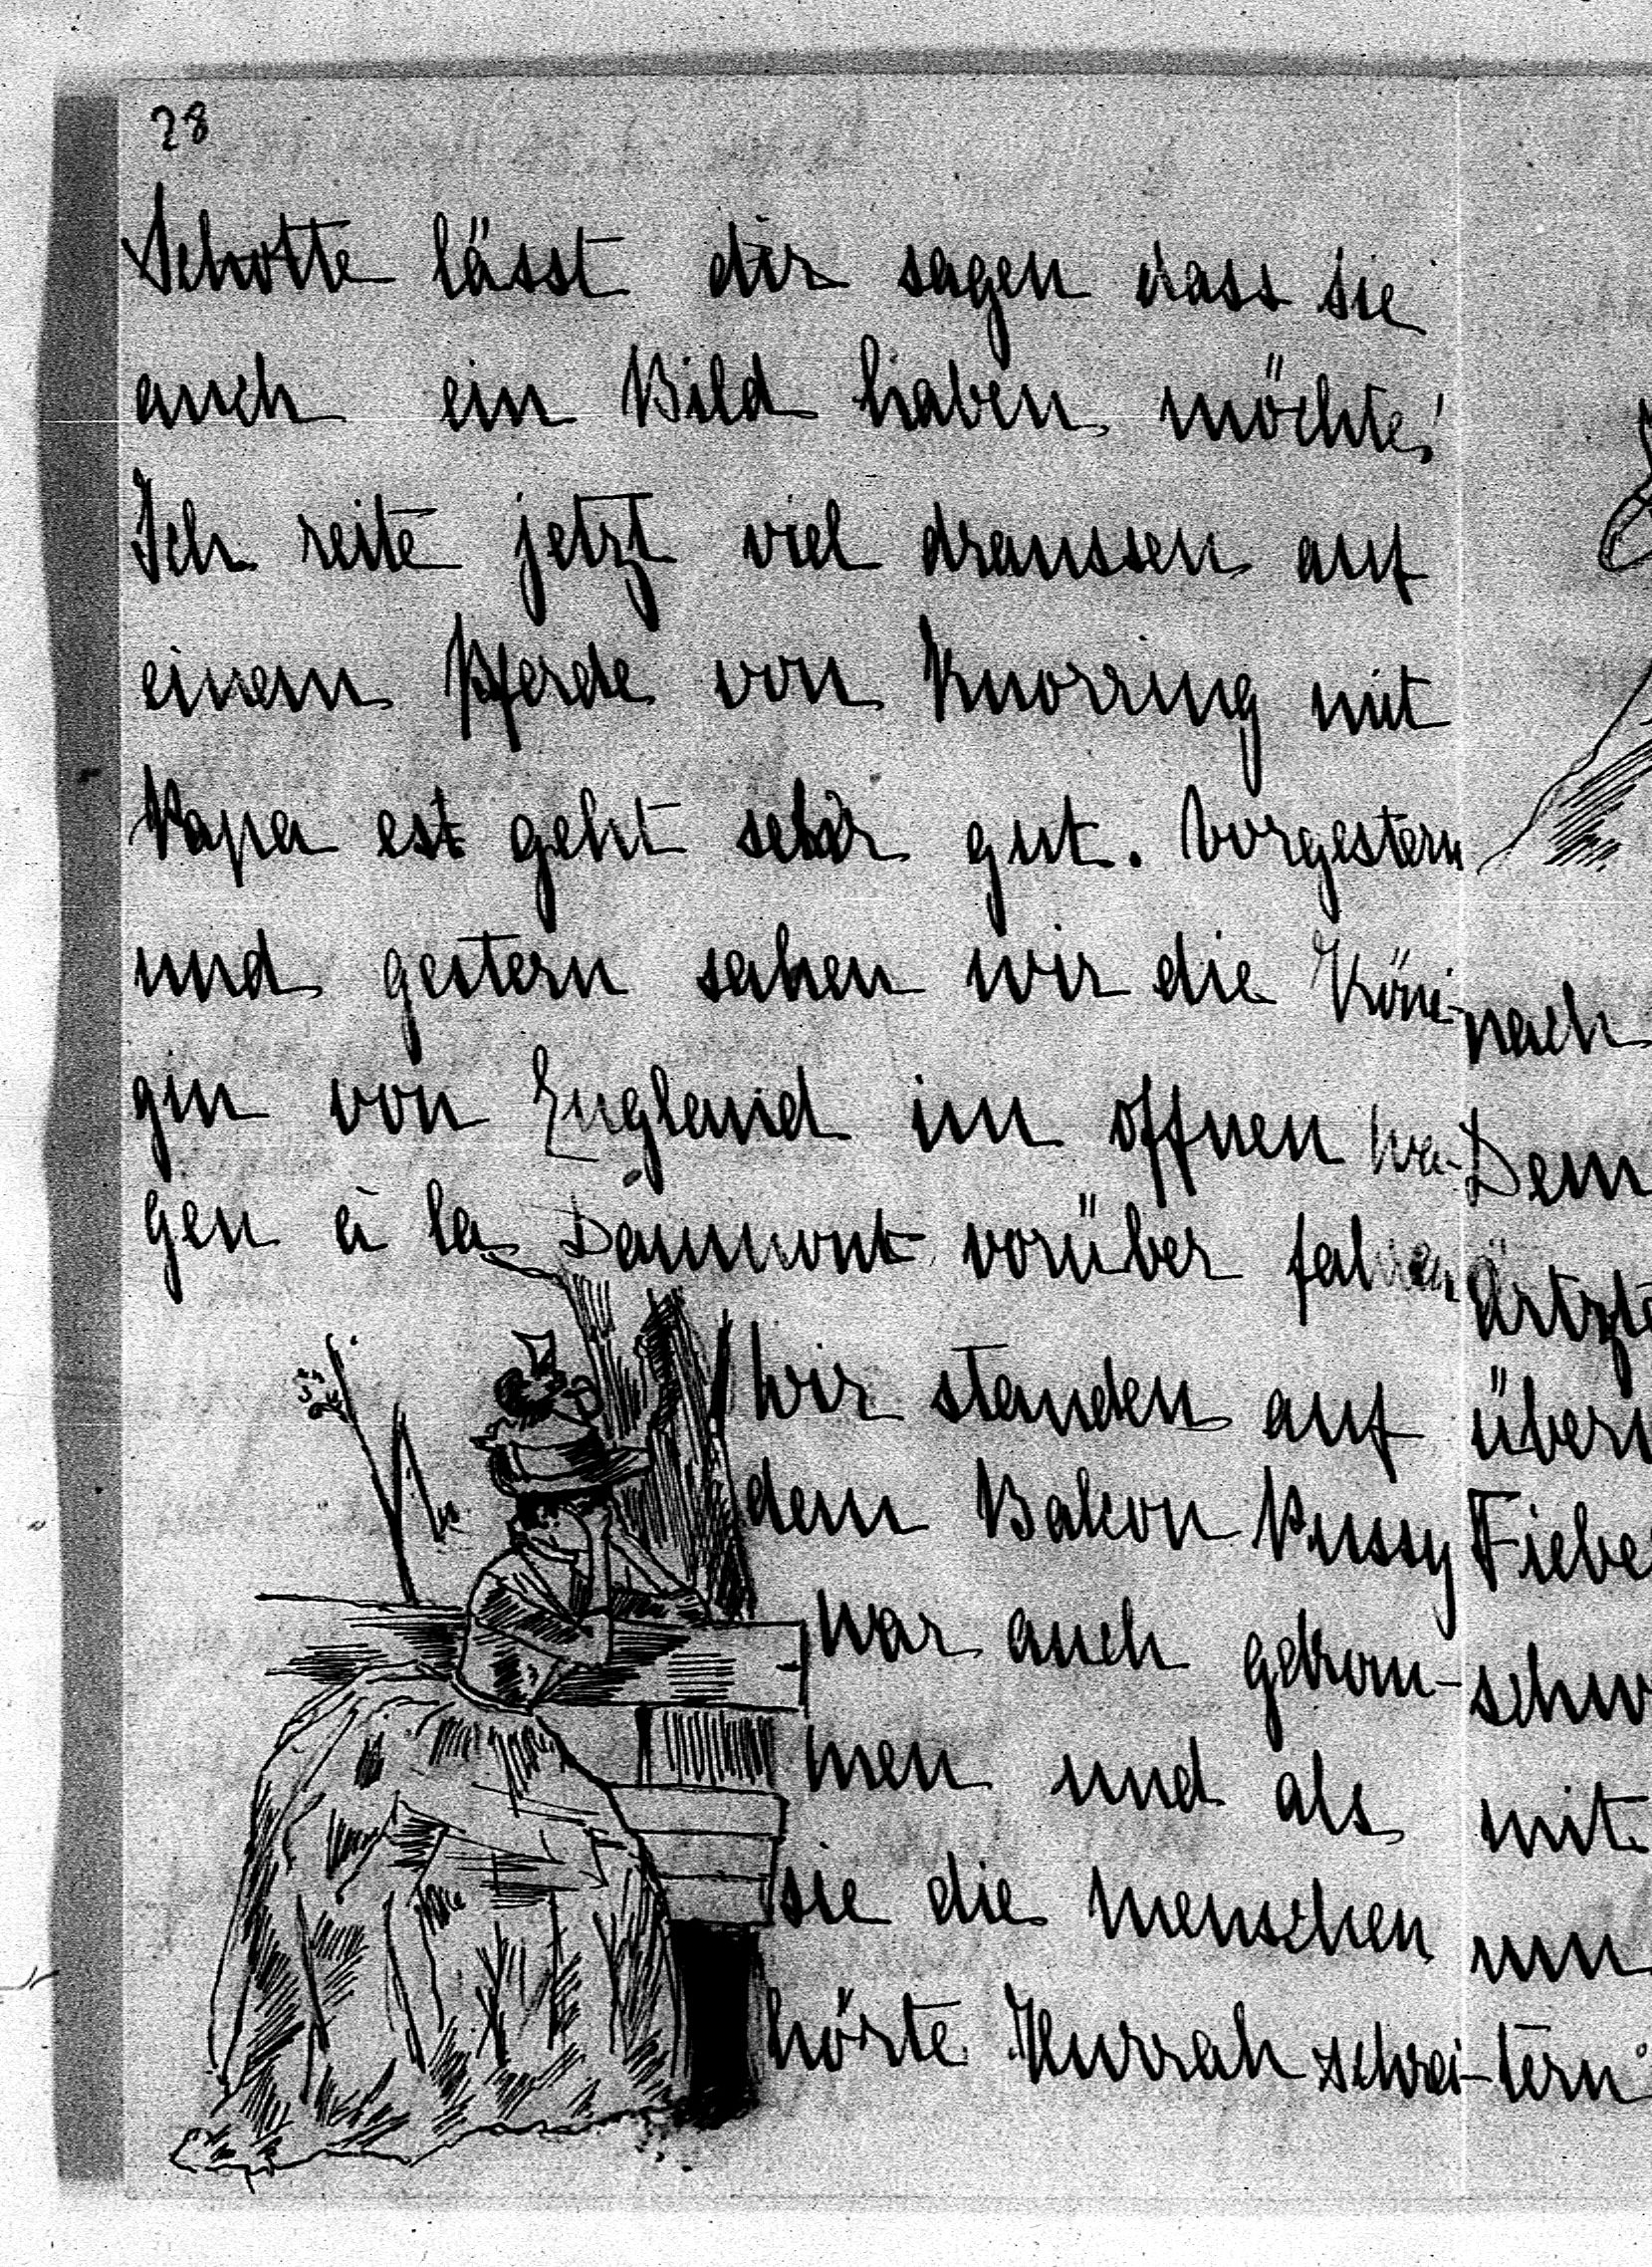 28
Schotte lässt dir sagen dass sie
auch ein Bild haben möchte!
Ich reite jetzt viel draussen auf
einem Pferde von Knorring mit
Papa est geht sehr gut. Vorgestern
und gestern sahen wir die Köni-
gin von England im offnen Wa-
gen à la Daumont vorüber fahren
Wir standen auf
dem Balcon Pussy
war auch gekom-
men und als
sie die Menschen
hörte Hurrah schrei-
nach
Dem
Ärtzte
übern
Fiebe
schw
mit
un
tern